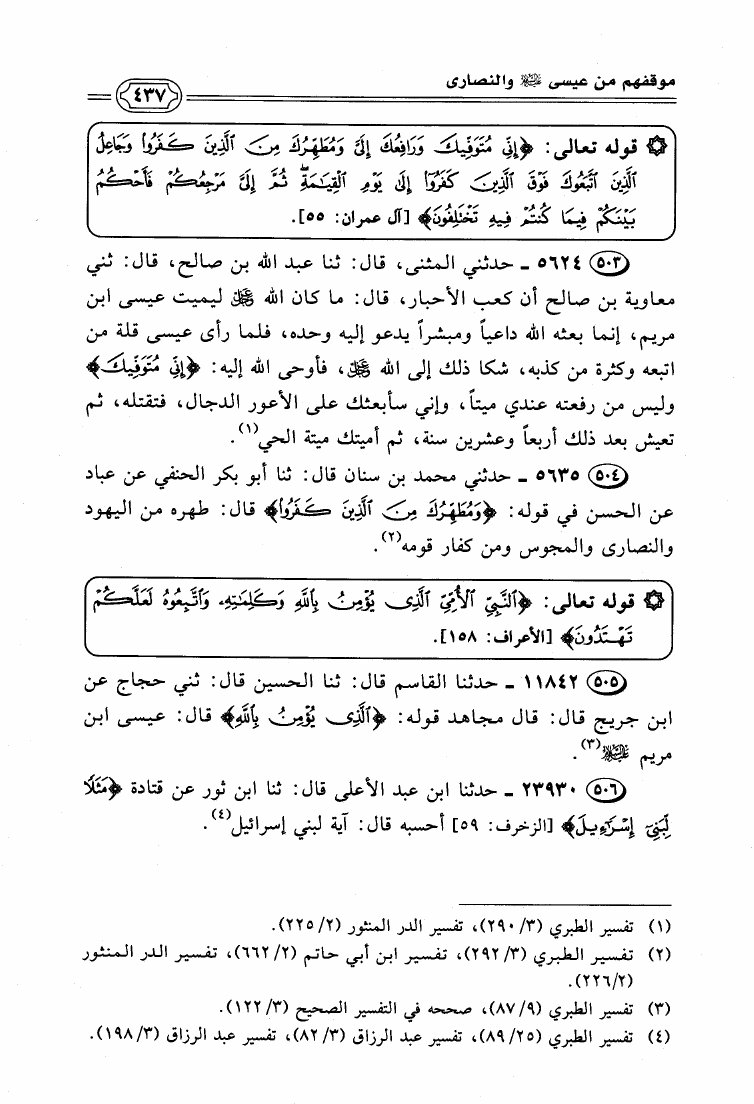 موقفهم من عيسى ﷺ والنصارى
٤٣٧
۞ قوله تعالى: ﴿إِنِّي مُتَوَفِّيكَ وَرَافِعُكَ إِلَيَّ وَمُطَهِّرُكَ مِنَ ٱلَّذِينَ كَفَرُوا۟ وَجَاعِلُ
ٱلَّذِينَ ٱتَّبَعُوكَ فَوْقَ ٱلَّذِينَ كَفَرُوٓا۟ إِلَىٰ يَوْمِ ٱلْقِيَـٰمَةِ ۖ ثُمَّ إِلَيَّ مَرْجِعُكُمْ فَأَحْكُمُ
بَيْنَكُمْ فِيمَا كُنتُمْ فِيهِ تَخْتَلِفُونَ﴾ [آل عمران: ٥٥].
(٥٠٣) ٥٦٢٤ ـ حدثني المثنى، قال: ثنا عبد الله بن صالح، قال: ثني
معاوية بن صالح أن كعب الأحبار، قال: ما كان الله ﷻ ليميت عيسى ابن
مريم، إنما بعثه الله داعياً ومبشراً يدعو إليه وحده، فلما رأى عيسى قلة من
اتبعه وكثرة من كذبه، شكا ذلك إلى الله ﷻ، فأوحى الله إليه: ﴿إِنِّي مُتَوَفِّيكَ﴾
وليس من رفعته عندي ميتاً، وإني سأبعثك على الأعور الدجال، فتقتله، ثم
تعيش بعد ذلك أربعاً وعشرين سنة، ثم أميتك ميتة الحي(١).
(٥٠٤) ٥٦٣٥ ـ حدثني محمد بن سنان قال: ثنا أبو بكر الحنفي عن عباد
عن الحسن في قوله: ﴿وَمُطَهِّرُكَ مِنَ ٱلَّذِينَ كَفَرُوا۟﴾ قال: طهره من اليهود
والنصارى والمجوس ومن كفار قومه(٢).
۞ قوله تعالى: ﴿ٱلنَّبِيِّ ٱلْأُمِّيِّ ٱلَّذِى يُؤْمِنُ بِٱللَّهِ وَكَلِمَـٰتِهِۦ وَٱتَّبِعُوهُ لَعَلَّكُمْ
تَهْتَدُونَ﴾ [الأعراف: ١٥٨].
(٥٠٥) ١١٨٤٢ ـ حدثنا القاسم قال: ثنا الحسين قال: ثني حجاج عن
ابن جريج قال: قال مجاهد قوله: ﴿ٱلَّذِى يُؤْمِنُ بِٱللَّهِ﴾ قال: عيسى ابن
مريم عليه السلام(٣).
(٥٠٦) ٢٣٩٣٠ ـ حدثنا ابن عبد الأعلى قال: ثنا ابن ثور عن قتادة ﴿مَثَلًا
لِّبَنِىٓ إِسْرَٰٓءِيلَ﴾ [الزخرف: ٥٩] أحسبه قال: آية لبني إسرائيل(٤).
(١) تفسير الطبري (٣/ ٢٩٠)، تفسير الدر المنثور (٢/ ٢٢٥).
(٢) تفسير الطبري (٣/ ٢٩٢)، تفسير ابن أبي حاتم (٢/ ٦٦٢)، تفسير الدر المنثور
(٢/ ٢٢٦).
(٣) تفسير الطبري (٩/ ٨٧)، صححه في التفسير الصحيح (٣/ ١٢٢).
(٤) تفسير الطبري (٢٥/ ٨٩)، تفسير عبد الرزاق (٣/ ٨٢)، تفسير عبد الرزاق (٣/ ١٩٨).